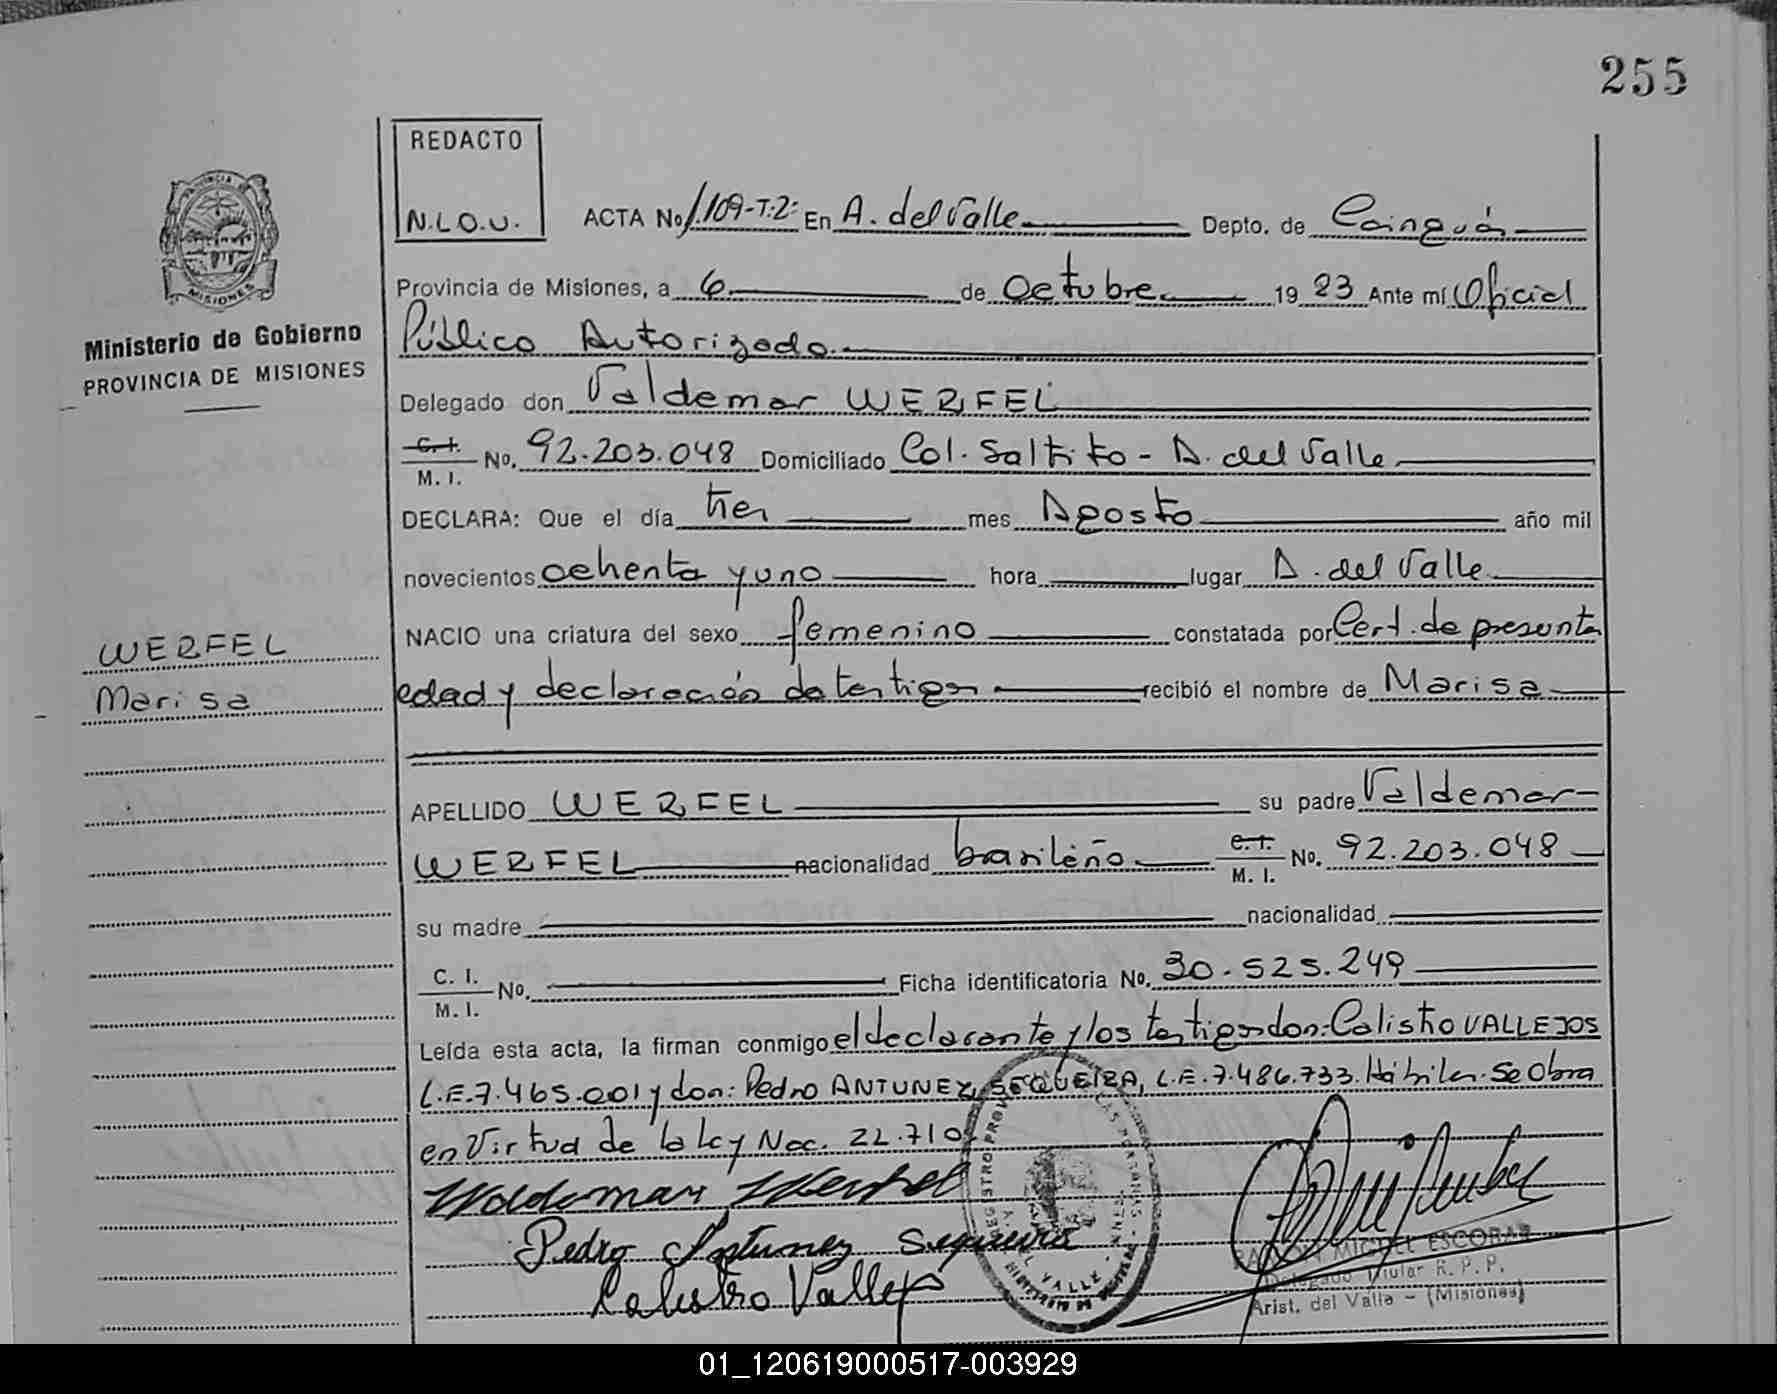 255
REDACTO
N.L.O.U.
ACTA No 1.109-T:2: En A. del Valle Depto. de Cainguás
Provincia de Misiones, a 6 de Octubre 19 83 Ante mí Oficial
Público Autorizado
Ministerio de Gobierno
PROVINCIA DE MISIONES
Delegado don Valdemar WERFEL
C. I. M. I. No. 92.203.048 Domiciliado Col. Saltito - A. del Valle
DECLARA: Que el día tres mes Agosto año mil
novecientos ochenta y uno hora lugar A. del Valle
NACIO una criatura del sexo femenino constatada por Cert. de presunta
edad y declaración de testigos recibió el nombre de Marisa
WERFEL
Marisa
APELLIDO WERFEL su padre Valdemar
WERFEL nacionalidad brasileño C. I. M. I. No. 92.203.048
su madre nacionalidad
C. I. M. I. No. Ficha identificatoria No. 30.525.249
Leída esta acta, la firman conmigo el declarante y los testigos don: Calistro VALLEJOS
L.E.7.465.001 y don: Pedro ANTUNEZ SEQUEIRA, L.E.7.486.733. Hábiles. Se Obra
en Virtud de la Ley Nac. 22.710
Waldemar Werfel
Pedro Antunez Sequeira
Calistro Vallejo
RAMON MIGUEL ESCOBAR
Delegado Titular R. P. P.
Arist. del Valle - (Misiones)
01_120619000517-003929